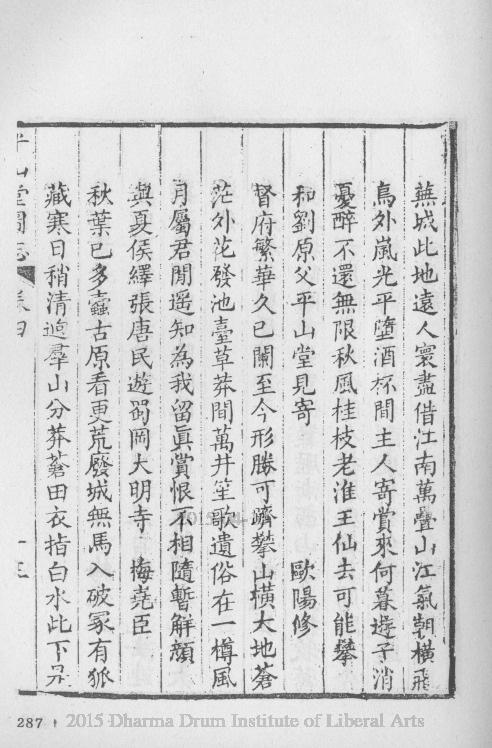 蕪城此地遠人寰盡借江南萬疊山江氣朝橫飛
鳥外嵐光平墮酒杯間主人寄賞來何暮遊子消
憂醉不還無限秋風桂枝老淮王仙去可能攀
和劉原父平山堂見寄 歐陽修
督府繁華久已闌至今形勝可躋攀山橫大地蒼
茫外花發池臺草莽間萬井笙歌遺俗在一樽風
月屬君閒遥知為我留眞賞恨不相隨暫解顏
與夏侯繹張唐民遊蜀岡大明寺 梅堯臣
秋葉已多蠹古原看更荒廢城無馬入破冢有狐
藏寒日稍清逈羣山分莽蒼田衣指白水此下是
平山堂圖志 卷四 十三
287
2015 Dharma Drum Institute of Liberal Arts